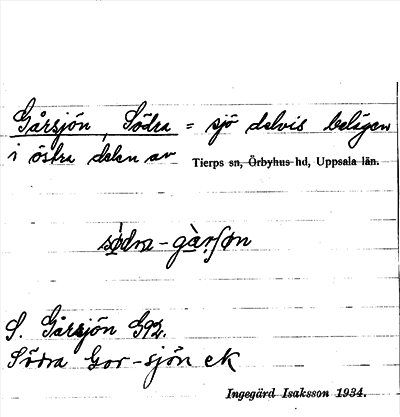 Gårsjön, Södra = sjö delvis belägen
i östra delen av Tierps sn, Örbyhus hd, Uppsala län.
sø̀dra-gà̱rʃøn
S. Gårsjön G92.
Södra Gor-sjön eK
Ingegärd Isaksson 1934.